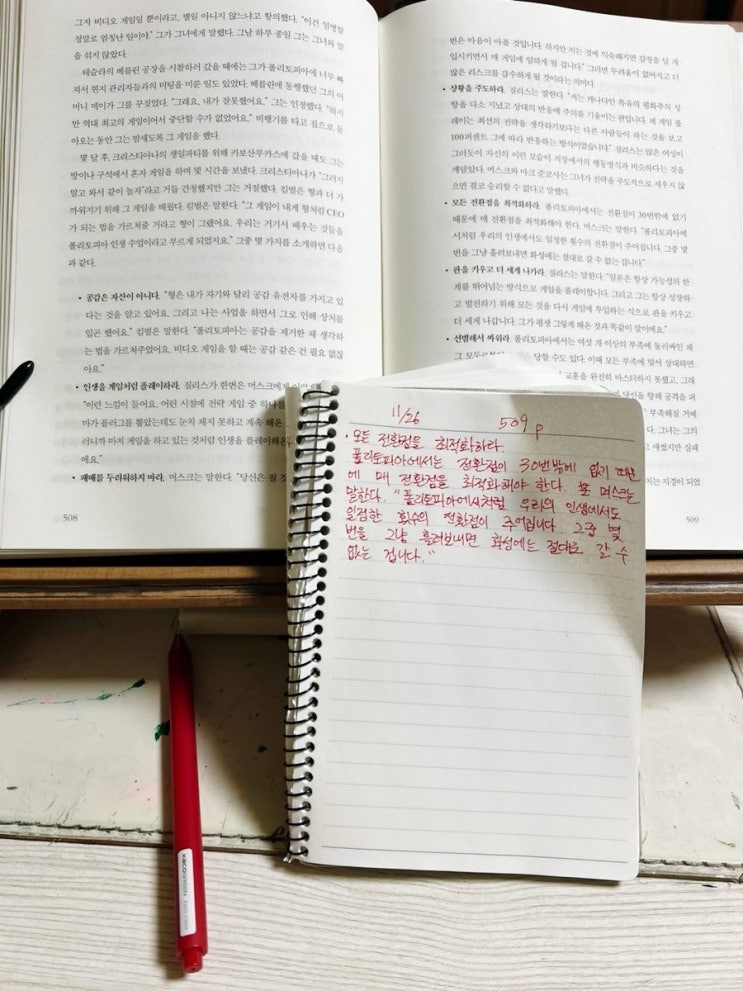 그저 비디오 게임일 뿐이라고, 별일 아니지 않느냐고 항의했다. "이건 염병할
정말로 엄청난 일이야." 그가 그녀에게 말했다. 그날 하루 종일 그는 그녀와 말
을 섞지 않았다.
테슬라의 베를린 공장을 시찰하러 갔을 때에는 그가 폴리토피아에 너무 빠
져서 현지 관리자들과의 미팅을 미룬 일도 있었다. 베를린에 동행했던 그의 어
머니 메이가 그를 꾸짖었다. "그래요, 내가 잘못했어요." 그는 인정했다. "하지
만 역대 최고의 게임이어서 중단할 수가 없었어요." 비행기를 타고 집으로 돌
아오는 동안 그는 밤새도록 그 게임을 했다.
몇 달 후, 크리스티아나의 생일파티를 위해 카보산루카스에 갔을 때도 그는
방이나 구석에서 혼자 게임을 하며 몇 시간을 보냈다. 크리스티아나가 "그러지
말고 와서 같이 놀자"라고 거듭 간청했지만 그는 거절했다. 킴벌은 형과 더 가
까워지기 위해 그 게임을 배웠다. 킴벌은 말한다. "그 게임이 내게 형처럼 CEO
가 되는 법을 가르쳐줄 거라고 형이 그랬어요. 우리는 거기서 배우는 것들을
폴리토피아 인생 수업이라고 부르게 되었지요." 그중 몇 가지를 소개하면 다음
과 같다.
• 공감은 자산이 아니다. "형은 내가 자기와 달리 공감 유전자를 가지고 있
다는 것을 알고 있어요. 그리고 나는 사업을 하면서 그로 인해 상처를
입곤 했어요." 킴벌은 말한다. "폴리토피아는 공감을 제거한 채 생각하
는 법을 가르쳐주었어요. 비디오 게임을 할 때는 공감 같은 건 필요 없잖
아요."
• 인생을 게임처럼 플레이하라. 질리스가 한번은 머스크에게
"이런 느낌이 들어요. 어린 시절에 전략 게임 중 하나를
마가 플러그를 뽑았는데도 눈치 채지 못하고 계속 해온
러니까 마치 게임을 하고 있는 것처럼 인생을 플레이해온
에요."
• 패배를 두려워하지 마라. 머스크는 말한다. "당신은 질 것
508
번은 마음이 아플 것입니다. 하지만 지는 것에 익숙해지면 감정을 덜 개
입시키면서 매 게임에 임하게 될 겁니다." 그러면 두려움이 없어지고 더
많은 리스크를 감수하게 될 것이라는 의미다.
• 상황을 주도하라. 질리스는 말한다. "저는 캐나다인 특유의 평화주의 성
향을 다소 지녔고 상대의 반응에 주의를 기울이는 편입니다. 제 게임 플
레이는 최선의 전략을 생각하기보다는 다른 사람들이 하는 것을 보고
100퍼센트 그에 따라 반응하는 방식이었습니다." 질리스는 많은 여성이
그러듯이 자신의 이런 모습이 직장에서의 행동방식과 비슷하다는 것을
깨달았다. 머스크와 마크 준코사는 그녀가 전략을 주도적으로 세우지 않
으면 결코 승리할 수 없다고 말했다.
• 모든 전환점을 최적화하라. 폴리토피아에서는 전환점이 30번밖에 없기
때문에 매 전환점을 최적화해야 한다. 머스크는 말한다. "폴리토피아에
서처럼 우리의 인생에서도 일정한 횟수의 전환점이 주어집니다. 그중 몇
번을 그냥 흘려보내면 화성에는 절대로 갈 수 없는 겁니다."
• 판을 키우고 더 세게 나가라. 질리스는 말한다. "일론은 항상 가능성의 한
계를 뛰어넘는 방식으로 게임을 플레이합니다. 그리고 그는 항상 성장하
고 발전하기 위해 모든 것을 다시 게임에 투입하는 식으로 판을 키우고
더 세게 나갑니다. 그가 평생 그렇게 해온 것과 똑같이 말이에요."
• 선별해서 싸워라. 폴리토피아에서는 여섯 개 이상의 부족에 둘러싸인 채
그 당할 수도 있다. 이때 모든 부족에 맞서 상대하면
교훈을 완전히 마스터하지 못했고, 그래
당신을 향해 공격을 퍼
부족해질 거예
그녀는 그의
애썼지만 실패
치는 지경이 되었
509
11/26 509 p
• 모든 전환점을 최적화하라.
폴리토피아에서는 전환점이 30번밖에 없기 때문
에 매 전환점을 최적화해야 한다. 머스크는
말한다. "폴리토피아에서처럼 우리의 인생에서도
일정한 횟수의 전환점이 주어집니다. 그중 몇
번을 그냥 흘려보내면 화성에는 절대로 갈 수
없는 겁니다."
KACOGREEN